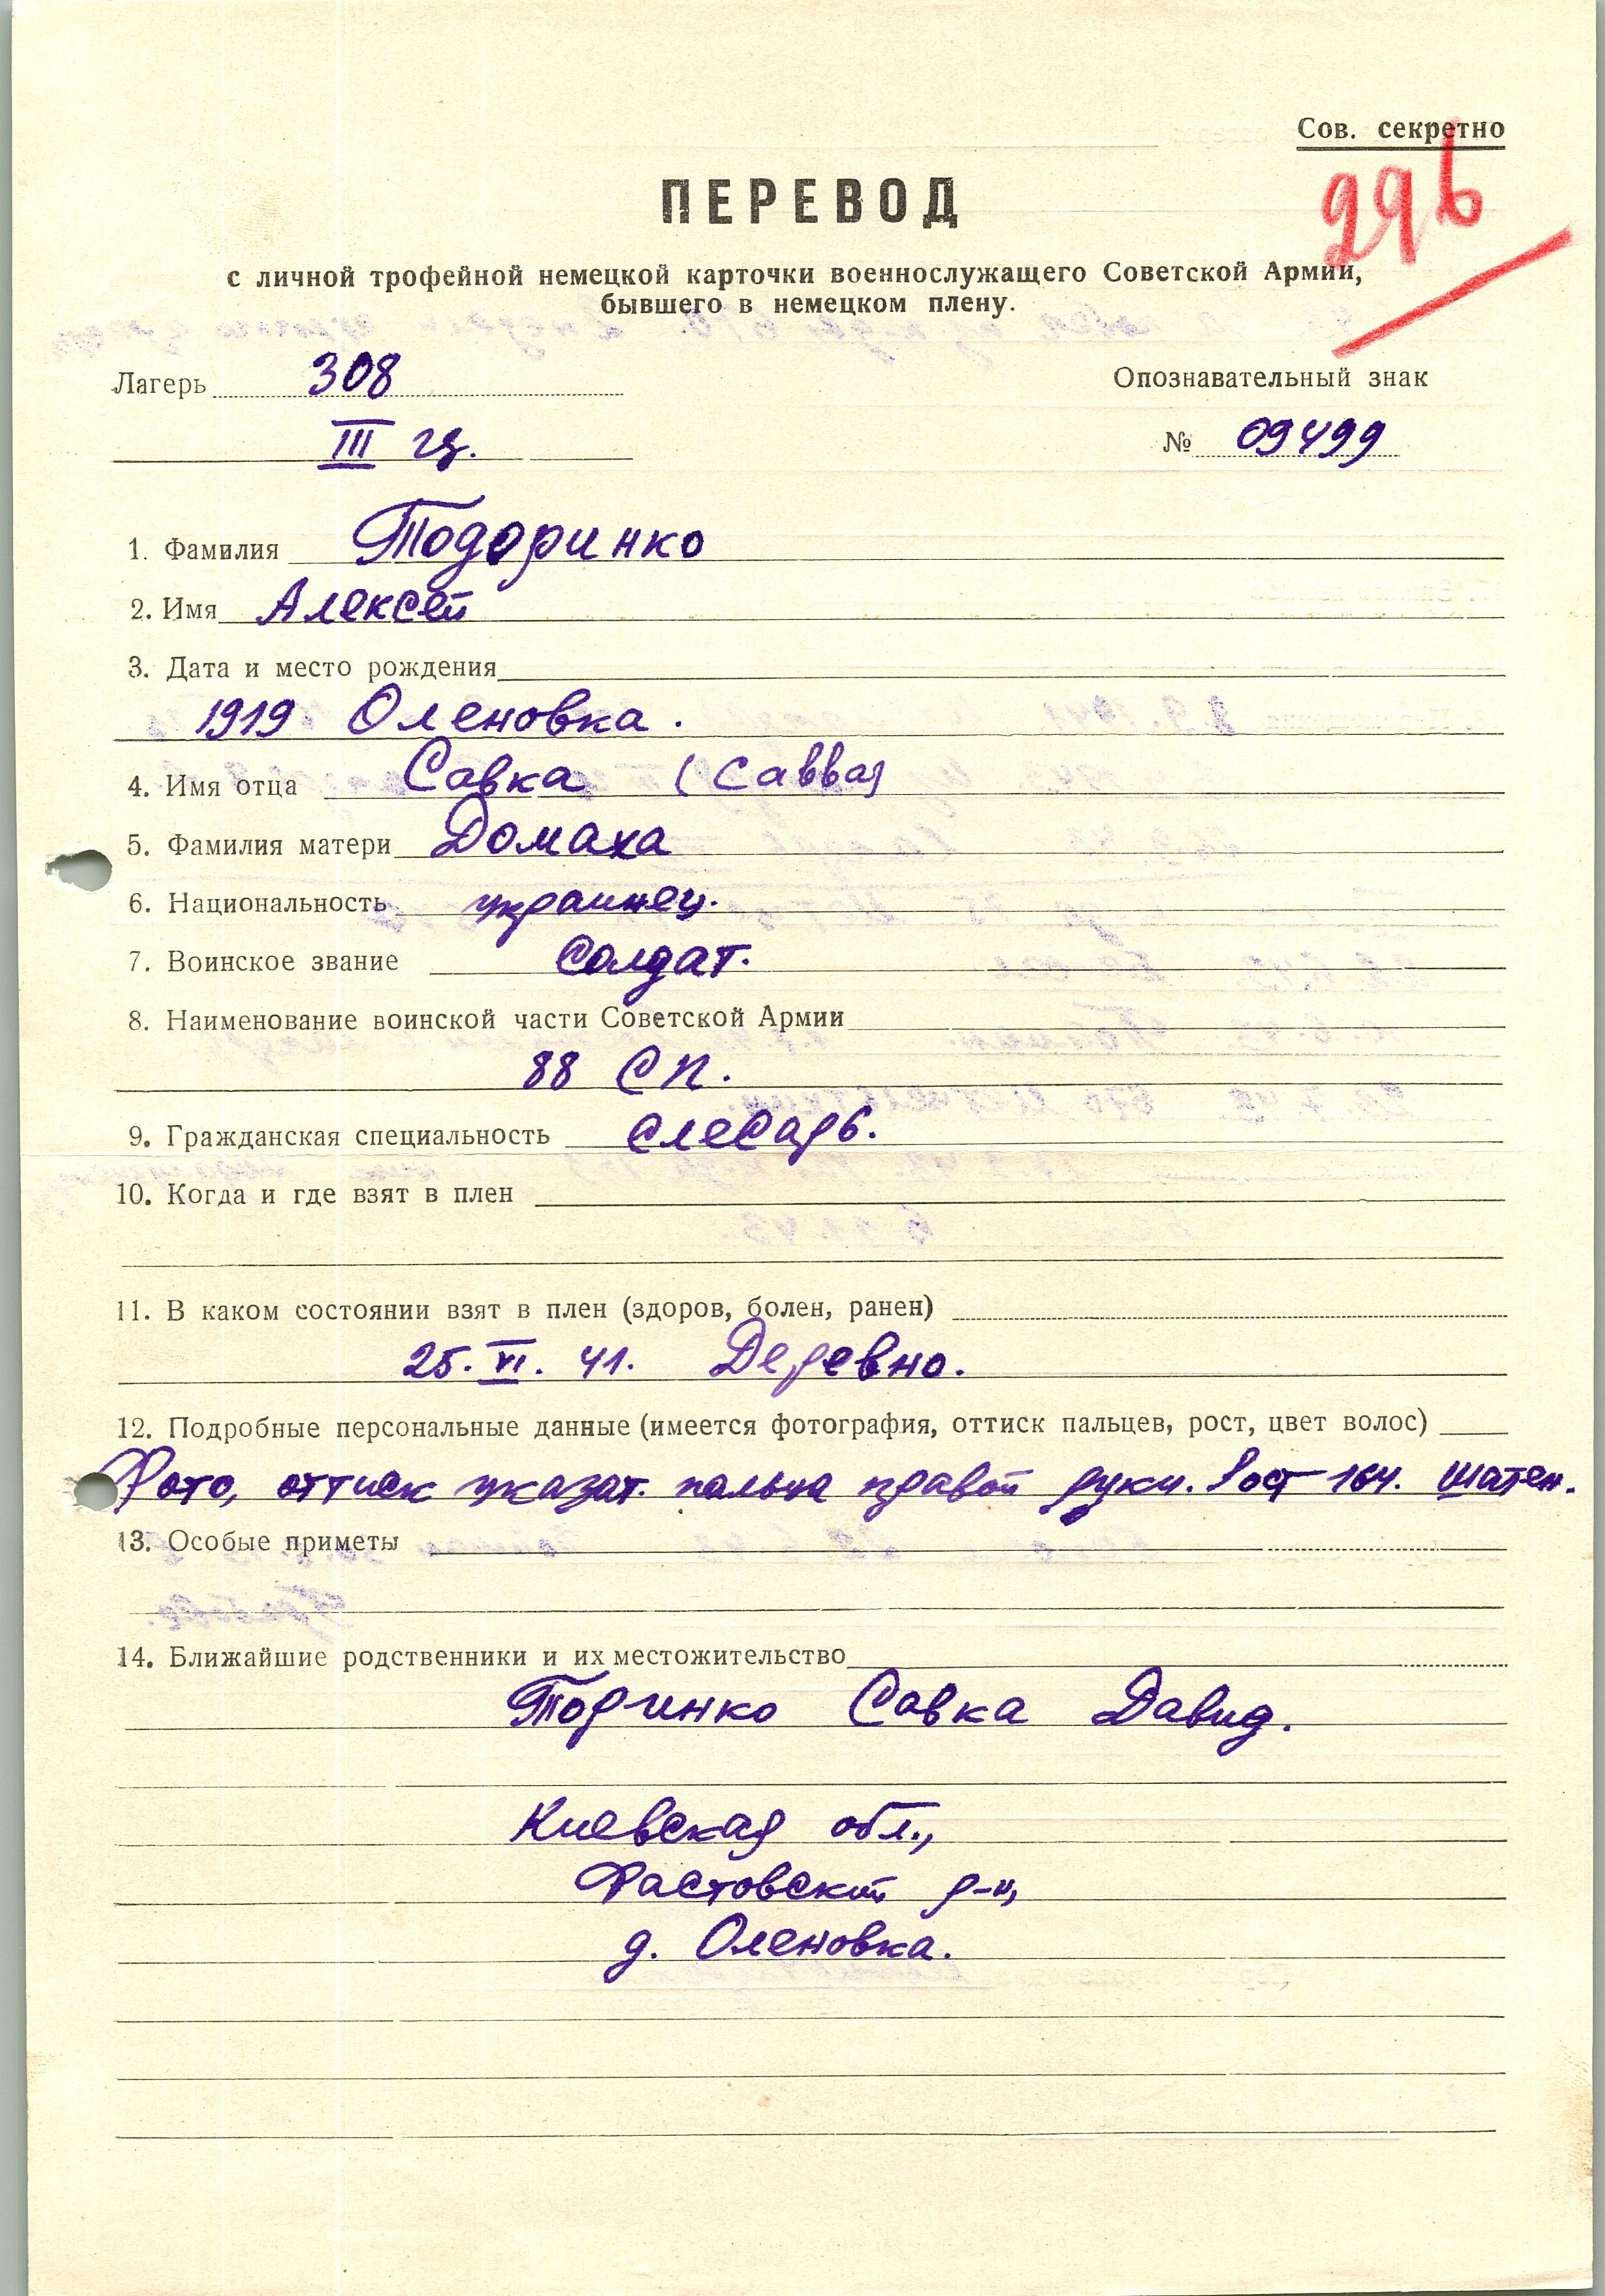 Сов. секретно
296
ПЕРЕВОД
с личной трофейной немецкой карточки военнослужащего Советской Армии,
бывшего в немецком плену.
Лагерь 308
Опознавательный знак
III гр.
№ 09499
1. Фамилия Тодоринко
2. Имя Алексей
3. Дата и место рождения
1919 Оленовка.
4. Имя отца Савка (Савва)
5. Фамилия матери Домаха
6. Национальность украинец.
7. Воинское звание солдат.
8. Наименование воинской части Советской Армии
88 СП.
9. Гражданская специальность слесарь.
10. Когда и где взят в плен
11. В каком состоянии взят в плен (здоров, болен, ранен)
25. VI. 41. Деревно.
12. Подробные персональные данные (имеется фотография, оттиск пальцев, рост, цвет волос)
Фото, оттиск указат. пальца правой руки. Рост 164. шатен.
13. Особые приметы
14. Ближайшие родственники и их местожительство
Савка Давид.
Киевская обл.,
Фастовский р-н,
д. Оленовка.